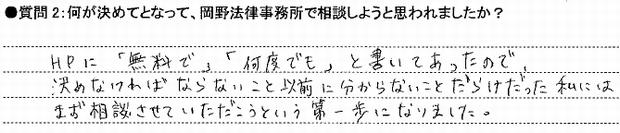 ●質問2:何が決めてとなって、岡野法律事務所で相談しようと思われましたか？
HPに「無料で」、「何度でも」と書いてあったので、
決めなければならないこと以前に分からないことだらけだった私には
まず相談させていただこうという第一歩になりました。